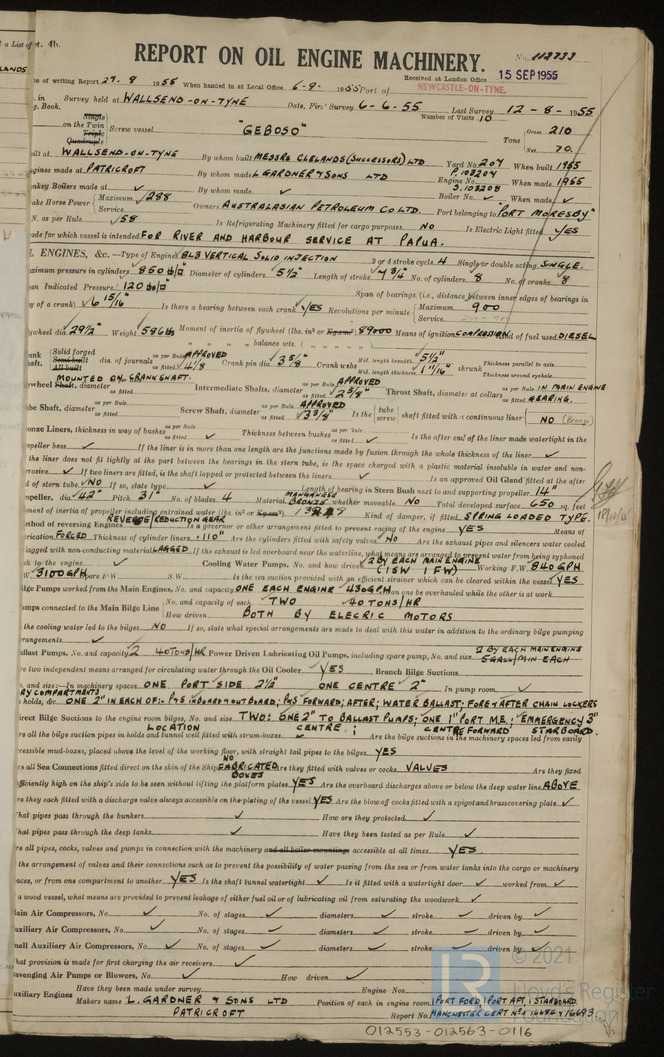 d a List of pt. 4b.
REPORT ON OIL ENGINE MACHINERY.
No. 112733
LANDS
te of writing Report 29.8 1955 When handed in at Local Office 6-9. 1955 Port of
Received at London Office 15 SEP 1955
NEWCASTLE-ON-TYNE.
. in Survey held at WALLSEND-ON-TYNE Date, First Survey 6-6-55 Last Survey 12-8-1955
g. Book. Number of Visits 10
on the Single Twin Triple Quadruple Screw vessel "GEBOSO" Tons Gross 210 Net 70.
uilt at WALLSEND-ON-TYNE By whom built MESSRS CLELANDS (SUCCESSORS) LTD Yard No. 207 When built 1955
ngines made at PATRICROFT By whom made L GARDNER & SONS LTD Engine No. P.103207 S.103208 When made 1955
onkey Boilers made at ✓ By whom made ✓ Boiler No. ✓ When made ✓
ake Horse Power Maximum 288 Service Owners AUSTRALASIAN PETROLEUM CO LTD. Port belonging to "PORT MORESBY"
N. as per Rule 58 Is Refrigerating Machinery fitted for cargo purposes NO Is Electric Light fitted YES
ade for which vessel is intended FOR RIVER AND HARBOUR SERVICE AT PAPUA.
L ENGINES, &c. —Type of Engine 8L3 VERTICAL SOLID INJECTION 2 or 4 stroke cycle 4 Single or double acting SINGLE.
aximum pressure in cylinders 850 lb/□ Diameter of cylinders 5½" Length of stroke 7¾" No. of cylinders 8 No. of cranks 8
an Indicated Pressure 120 lb/□ Span of bearings (i.e., distance between inner edges of bearings in
y of a crank) 6 15/16" Is there a bearing between each crank YES Revolutions per minute Maximum 900 Service
lywheel dia. 29½" Weight 586 lb Moment of inertia of flywheel (lbs. in² or Kg.cm²) 89000 Means of ignition COMPRESSION Kind of fuel used DIESEL
" " " balance wts. ( " " )
rank haft, Solid forged Semi built All built dia. of journals as per Rule APPROVED as fitted 4⅛ Crank pin dia. 3⅝" Crank webs Mid. length breadth 5½" Mid. length thickness 1 11/16" shrunk Thickness parallel to axis Thickness around eyehole
MOUNTED ON CRANKSHAFT.
wheel Shaft, diameter as per Rule as fitted Intermediate Shafts, diameter as per Rule APPROVED as fitted 2⅞" Thrust Shaft, diameter at collars as per Rule as fitted IN MAIN ENGINE GEARING.
ube Shaft, diameter as per Rule as fitted Screw Shaft, diameter as per Rule APPROVED as fitted 3⅜" Is the tube screw shaft fitted with a continuous liner NO (Bronze)
onze Liners, thickness in way of bushes as per Rule as fitted ✓ Thickness between bushes as per Rule as fitted ✓ Is the after end of the liner made watertight in the
opeller boss ✓ If the liner is in more than one length are the junctions made by fusion through the whole thickness of the liner ✓
the liner does not fit tightly at the part between the bearings in the stern tube, is the space charged with a plastic material insoluble in water and non-
rrosive ✓ If two liners are fitted, is the shaft lapped or protected between the liners ✓ Is an approved Oil Gland fitted at the after
d of stern tube NO If so, state type ✓ Length of bearing in Stern Bush next to and supporting propeller 14"
opeller, dia. 42" Pitch 31" No. of blades 4 Material MANGANESE BRONZE whether moveable NO Total developed surface 650 sq. feet
ment of inertia of propeller including entrained water (lbs. in² or Kg.cm²) Kind of damper, if fitted SPRING LOADED TYPE.
ethod of reversing Engines REVERSE REDUCTION GEAR Is a governor or other arrangement fitted to prevent racing of the engine YES Means of
brication FORCED Thickness of cylinder liners .110" Are the cylinders fitted with safety valves NO Are the exhaust pipes and silencers water cooled
lagged with non-conducting material LAGGED If the exhaust is led overboard near the waterline, what means are arranged to prevent water from being syphoned
ck to the engine ✓ Cooling Water Pumps, No. and how driven 2 BY EACH MAIN ENGINE (1 SW 1 FW) Working F.W. 840 GPH
W. 3100 GPH Spare F.W. S.W. Is the sea suction provided with an efficient strainer which can be cleared within the vessel YES
lge Pumps worked from the Main Engines, No. and capacity ONE EACH ENGINE 430 GPH Can one be overhauled while the other is at work
umps connected to the Main Bilge Line No. and capacity of each TWO 40 TONS/HR
How driven BOTH BY ELECRIC MOTORS
the cooling water led to the bilges NO If so, state what special arrangements are made to deal with this water in addition to the ordinary bilge pumping
rangements ✓
allast Pumps, No. and capacity 2 40 TONS/HR Power Driven Lubricating Oil Pumps, including spare pump, No. and size 2 BY EACH MAIN ENGINE 5 GALL/MIN EACH
re two independent means arranged for circulating water through the Oil Cooler YES Branch Bilge Suctions
. and size:—In machinery spaces ONE PORT SIDE 2½" ONE CENTRE 2" In pump room ✓
RY COMPARTMENTS
holds, &c. ONE 2" IN EACH OF:- P&S INBOARD & OUTBOARD; P&S FORWARD; AFTER; WATER BALLAST; FORE & AFTER CHAIN LOCKERS
irect Bilge Suctions to the engine room bilges, No. and size TWO: ONE 2" TO BALLAST PUMPS; ONE 1" PORT M.E.; EMMERGENCY 3"
LOCATION CENTRE; CENTRE FORWARD STARBOARD.
re all the bilge suction pipes in holds and tunnel well fitted with strum-boxes ✓ Are the bilge suctions in the machinery spaces led from easily
ccessible mud-boxes, placed above the level of the working floor, with straight tail pipes to the bilges YES
re all Sea Connections fitted direct on the skin of the Ship NO FABRICATED BOXES Are they fitted with valves or cocks VALVES Are they fixed
fficiently high on the ship's side to be seen without lifting the platform plates YES Are the overboard discharges above or below the deep water line ABOVE
re they each fitted with a discharge valve always accessible on the plating of the vessel YES Are the blow off cocks fitted with a spigot and brass covering plate ✓
hat pipes pass through the bunkers ✓ How are they protected ✓
hat pipes pass through the deep tanks ✓ Have they been tested as per Rule ✓
re all pipes, cocks, valves and pumps in connection with the machinery and all boiler mountings accessible at all times YES.
the arrangement of valves and their connections such as to prevent the possibility of water passing from the sea or from water tanks into the cargo or machinery
aces, or from one compartment to another YES Is the shaft tunnel watertight ✓ Is it fitted with a watertight door ✓ worked from ✓
a wood vessel, what means are provided to prevent leakage of either fuel oil or of lubricating oil from saturating the woodwork ✓
ain Air Compressors, No. ✓ No. of stages ✓ diameters ✓ stroke ✓ driven by ✓
uxiliary Air Compressors, No. ✓ No. of stages ✓ diameters ✓ stroke ✓ driven by ✓
mall Auxiliary Air Compressors, No. ✓ No. of stages ✓ diameters ✓ stroke ✓ driven by ✓
hat provision is made for first charging the air receivers ✓
avenging Air Pumps or Blowers, No. ✓ How driven ✓
uxiliary Engines Have they been made under survey Engine Nos.
Makers name L. GARDNER & SONS LTD Position of each in engine room 1 PORT FORD 1 PORT AFT, 1 STARBOARD
PATRICROFT Report No. MANCHESTER CERT Nos 16692 & 16693
012553-012563-0116
© 2021
Lloyd's Register
Foundation